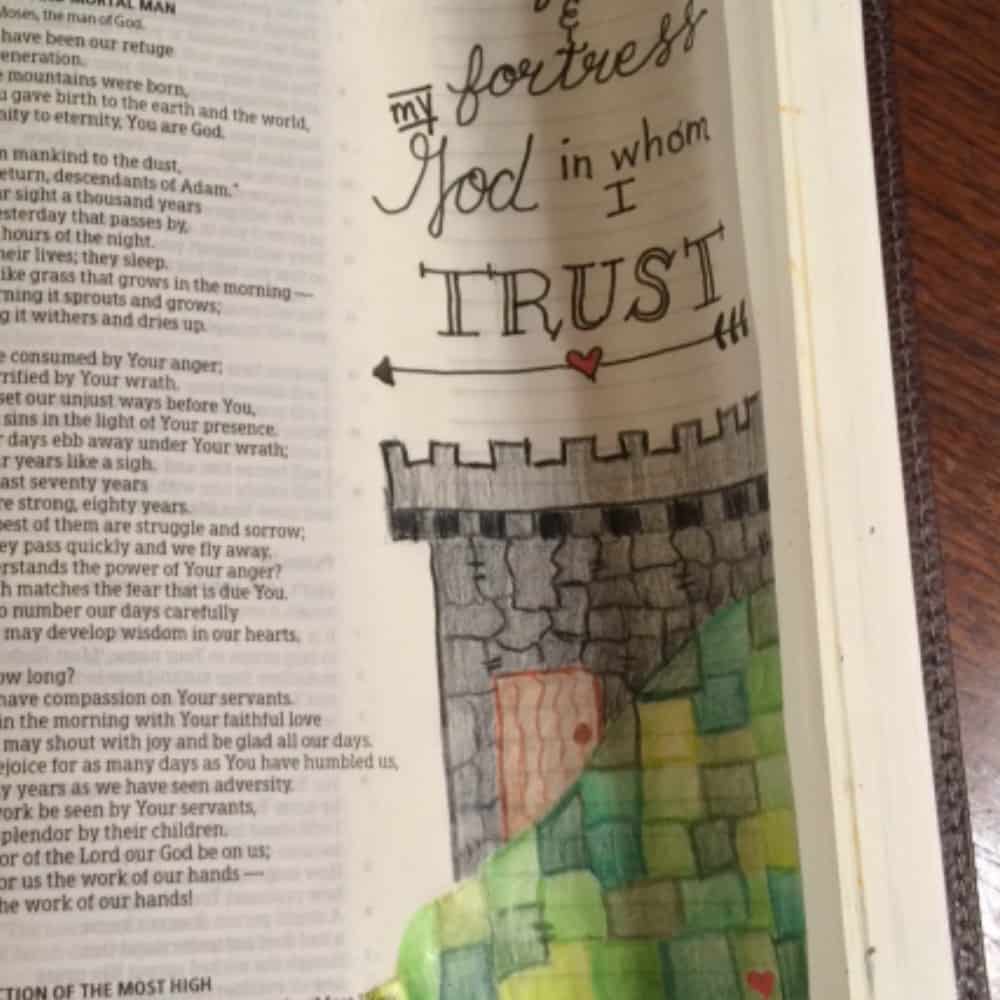 MORTAL MAN
Moses, the man of God.
have been our refuge
eneration.
mountains were born,
u gave birth to the earth and the world,
nity to eternity, You are God.
n mankind to the dust,
eturn, descendants of Adam."
ur sight a thousand years
esterday that passes by,
hours of the night.
heir lives; they sleep.
ike grass that grows in the morning —
rning it sprouts and grows;
g it withers and dries up.
e consumed by Your anger;
rrified by Your wrath.
set our unjust ways before You,
sins in the light of Your presence.
r days ebb away under Your wrath;
r years like a sigh.
ast seventy years
re strong, eighty years.
best of them are struggle and sorrow;
ey pass quickly and we fly away.
erstands the power of Your anger?
h matches the fear that is due You.
o number our days carefully
may develop wisdom in our hearts.
ow long?
have compassion on Your servants.
in the morning with Your faithful love
may shout with joy and be glad all our days.
ejoice for as many days as You have humbled us,
y years as we have seen adversity.
work be seen by Your servants,
plendor by their children.
or of the Lord our God be on us;
or us the work of our hands —
he work of our hands!
CTION OF THE MOST HIGH
&
my fortress
God in whom
I
TRUST